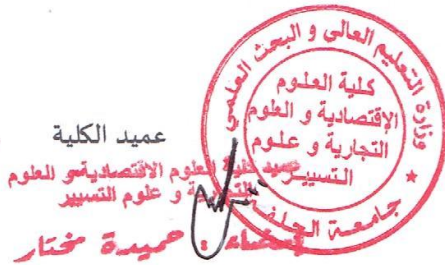 وزارة التعليم العالي و البحث العلمي
كلية العلوم
الإقتصادية و العلوم
التجارية و علوم
التسيير
جامعة الجلفة
عميد الكلية
عميد كلية العلوم الاقتصادية و العلوم
التجارية و علوم التسيير
إمضاء : حميدة مختار